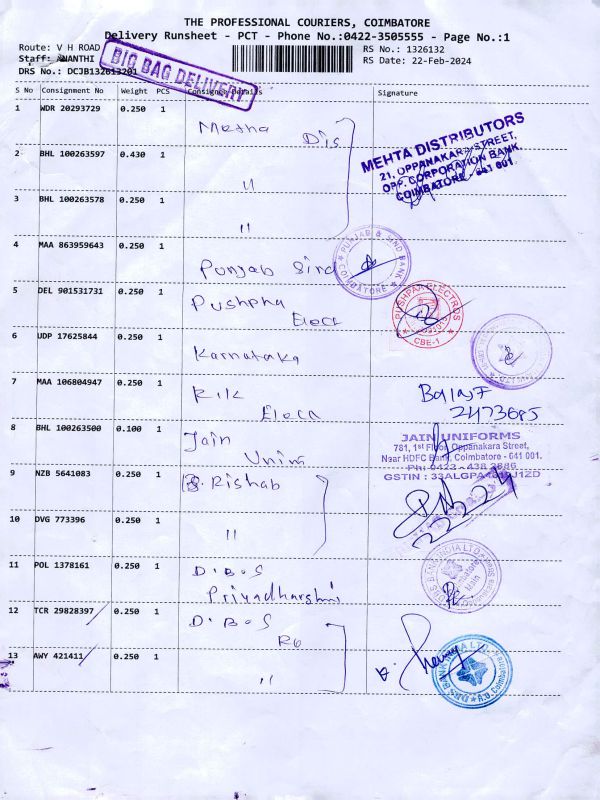 THE PROFESSIONAL COURIERS, COIMBATORE
Delivery Runsheet - PCT - Phone No.:0422-3505555 - Page No.:1
Route: V H ROAD
RS No.: 1326132
Staff: ANANTHI
RS Date: 22-Feb-2024
DRS No.: DCJB132613201
BIG BAG DELIVERY
S No Consignment No Weight PCS Consignee Details Signature
1 WDR 20293729 0.250 1 Mehta Dis
MEHTA DISTRIBUTORS
21, OPPANAKARA STREET,
OPP. CORPORATION BANK,
COIMBATORE - 641 001.
2 BHL 100263597 0.430 1 "
3 BHL 100263578 0.250 1 "
4 MAA 863959643 0.250 1 Punjab Sind
PUNJAB & SIND BANK
COIMBATORE
5 DEL 901531731 0.250 1 Pushpha
Elect
PUSHPAK ELECTROS
CBE-1
6 UDP 17625844 0.250 1 Karnataka
7 MAA 106804947 0.250 1 R.K
Elect
Balaji
2473685
8 BHL 100263500 0.100 1 Jain
Unim
JAIN UNIFORMS
781, 1st Floor, Oppanakara Street,
Near HDFC Bank, Coimbatore - 641 001.
Ph: 0422 - 438 3886
9 NZB 5641083 0.250 1 Rishab
22/2/24
10 DVG 773396 0.250 1 "
11 POL 1378161 0.250 1 D.B.S
Priyadharshni
BANK INDIA LTD
12 TCR 29828397 0.250 1 D.B.S
Ro
13 AWY 421411 0.250 1 "
DBS BANK INDIA LTD
R.O. Coimbatore